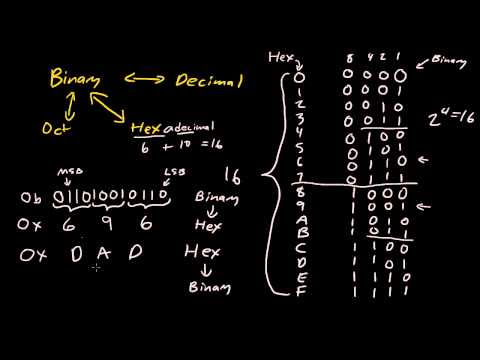 Binary ↔ Decimal
Oct
Hexadecimal
6 + 10 = 16
MSB LSB
0b 011010010110 Binary
0x 6 9 6 Hex
0x D A D Hex
Binary
16
Hex 8 4 2 1 Binary
0 0 0 0 0
1 0 0 0 1
2 0 0 1 0
3 0 0 1 1
2⁴=16
4 0 1 0 0
5 0 1 0 1
6 0 1 1 0
7 0 1 1 1
8 1 0 0 0
9 1 0 0 1
A 1 0 1 0
B 1 0 1 1
C 1 1 0 0
D 1 1 0 1
E 1 1 1 0
F 1 1 1 1